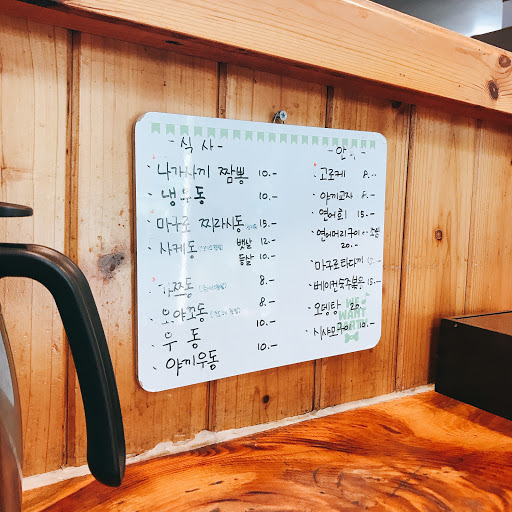 - 식사 -
· 나가사끼 짬뽕 10.-
· 냉우동 10.-
· 마구로 찌라시동 15.-
· 사케동 뱃살 12.-
등살 10.-
· 가쯔동 8.-
· 오야꼬동 8.-
· 우동 10.-
· 야끼우동 10.-
· 고로케 8.-
· 야끼교자 8.-
· 연어회 15.-
· 연어머리구이
20.-
· 마구로타다끼 15.-
· 베이컨숙주볶음 15.-
· 오뎅탕 20.-
· 시샤모구이 10.-
WE
WANT